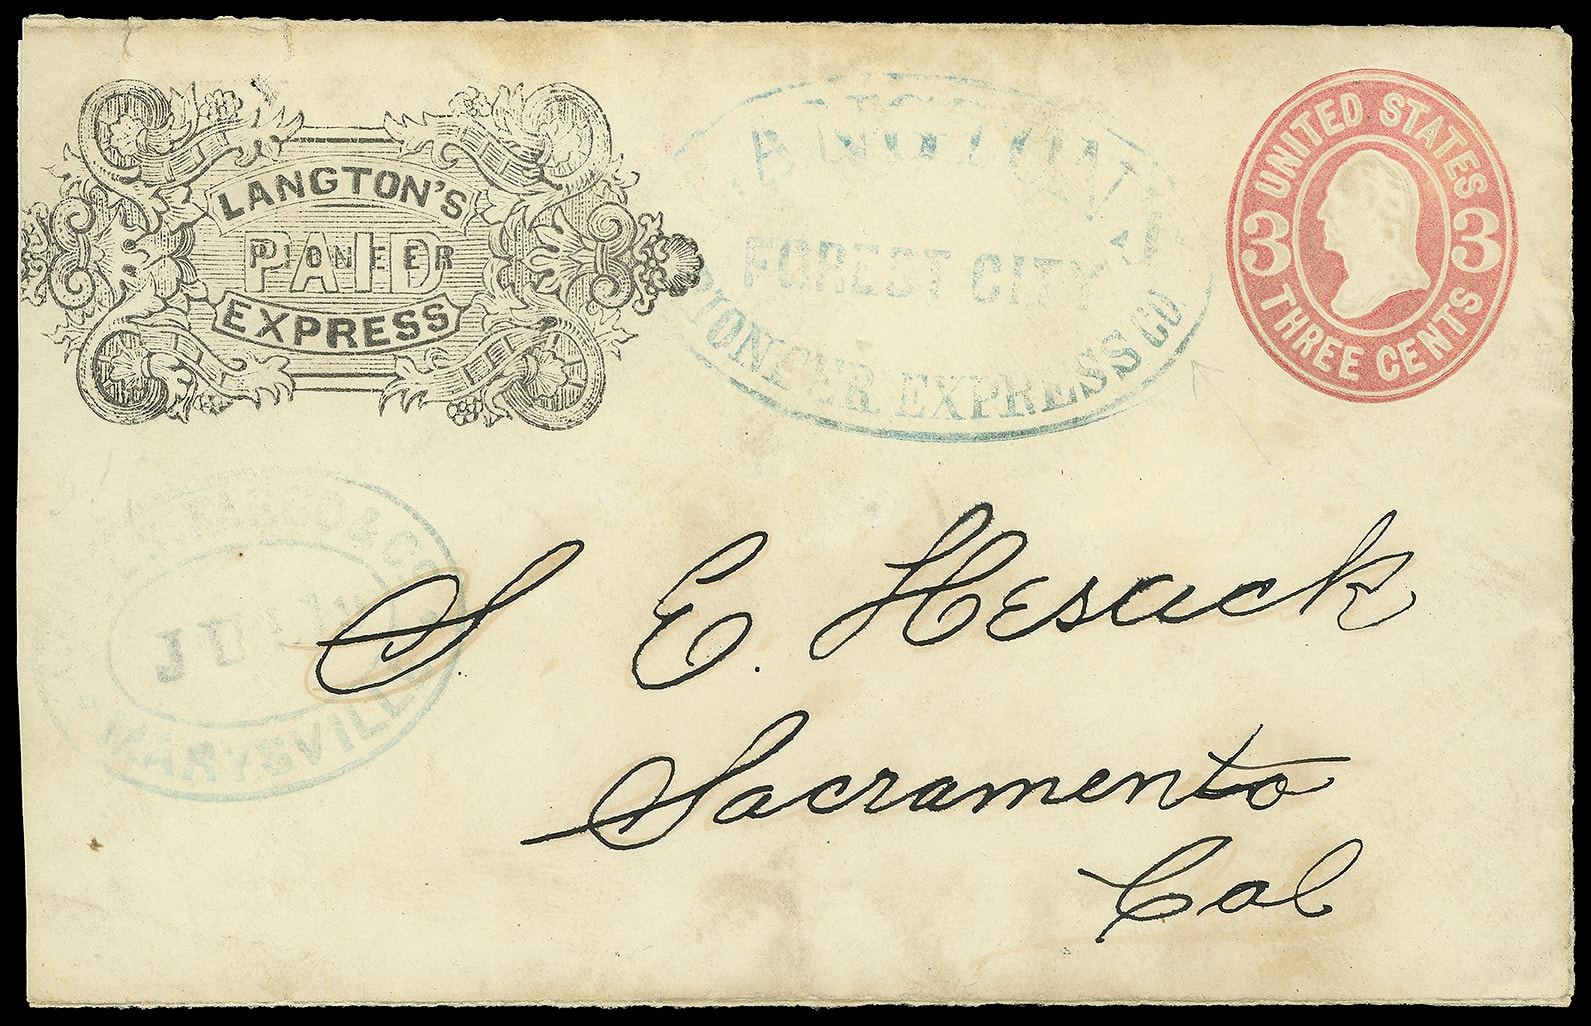 LANGTON'S
PIONEER
PAID
EXPRESS
FOREST CITY
PIONEER EXPRESS CO
UNITED STATES
3 3
THREE CENTS
JUL
MARYSVILLE
S. E. Hesack
Sacramento
Cal